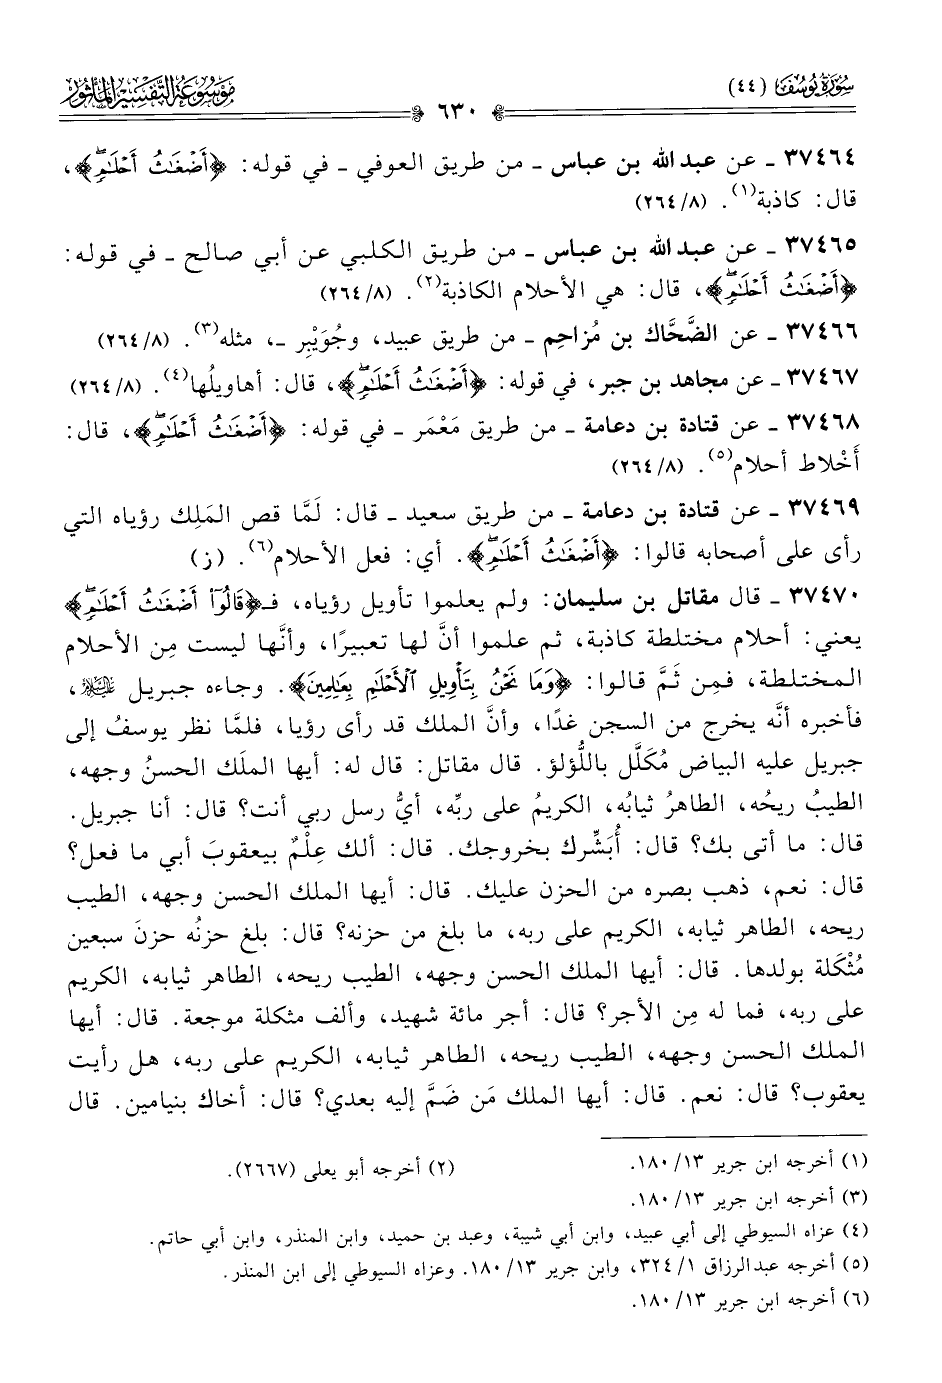 سُورَةُ يُوسُفَ (٤٤)
٦٣٠
مَوْسُوعَةُ التَّفْسِيْرِ المَأْثُورِ
٣٧٤٦٤ ـ عن عبد الله بن عباس ـ من طريق العوفي ـ في قوله: ﴿أَضْغَٰثُ أَحْلَٰمٖۖ﴾،
قال: كاذبة(١). (٢٦٤/٨)
٣٧٤٦٥ ـ عن عبد الله بن عباس ـ من طريق الكلبي عن أبي صالح ـ في قوله:
﴿أَضْغَٰثُ أَحْلَٰمٖۖ﴾، قال: هي الأحلام الكاذبة(٢). (٢٦٤/٨)
٣٧٤٦٦ ـ عن الضَّحَّاك بن مُزاحِم ـ من طريق عبيد، وجُوَيْبِر ـ، مثله(٣). (٢٦٤/٨)
٣٧٤٦٧ ـ عن مجاهد بن جبر، في قوله: ﴿أَضْغَٰثُ أَحْلَٰمٖۖ﴾، قال: أهاويلُها(٤). (٢٦٤/٨)
٣٧٤٦٨ ـ عن قتادة بن دعامة ـ من طريق مَعْمَر ـ في قوله: ﴿أَضْغَٰثُ أَحْلَٰمٖۖ﴾، قال:
أَخْلاط أحلام(٥). (٢٦٤/٨)
٣٧٤٦٩ ـ عن قتادة بن دعامة ـ من طريق سعيد ـ قال: لَمَّا قص المَلِك رؤياه التي
رأى على أصحابه قالوا: ﴿أَضْغَٰثُ أَحْلَٰمٖۖ﴾. أي: فعل الأحلام(٦). (ز)
٣٧٤٧٠ ـ قال مقاتل بن سليمان: ولم يعلموا تأويل رؤياه، فـ﴿قَالُوٓاْ أَضْغَٰثُ أَحْلَٰمٖۖ﴾
يعني: أحلام مختلطة كاذبة، ثم علموا أنَّ لها تعبيرًا، وأنَّها ليست مِن الأحلام
المختلطة، فمن ثَمَّ قالوا: ﴿وَمَا نَحْنُ بِتَأْوِيلِ ٱلْأَحْلَٰمِ بِعَٰلِمِينَ﴾. وجاءه جبريل عليه السلام،
فأخبره أنَّه يخرج من السجن غدًا، وأنَّ الملك قد رأى رؤيا، فلمَّا نظر يوسفُ إلى
جبريل عليه البياض مُكَلَّل باللُّؤلؤ. قال مقاتل: قال له: أيها الملَك الحسنُ وجهه،
الطيبُ ريحُه، الطاهرُ ثيابُه، الكريمُ على ربِّه، أيُّ رسل ربي أنت؟ قال: أنا جبريل.
قال: ما أتى بك؟ قال: أُبَشِّرك بخروجك. قال: ألك عِلْمٌ بيعقوبَ أبي ما فعل؟
قال: نعم، ذهب بصره من الحزن عليك. قال: أيها الملك الحسن وجهه، الطيب
ريحه، الطاهر ثيابه، الكريم على ربه، ما بلغ من حزنه؟ قال: بلغ حزنُه حزنَ سبعين
مُثْكَلة بولدها. قال: أيها الملك الحسن وجهه، الطيب ريحه، الطاهر ثيابه، الكريم
على ربه، فما له مِن الأجر؟ قال: أجر مائة شهيد، وألف مثكلة موجعة. قال: أيها
الملك الحسن وجهه، الطيب ريحه، الطاهر ثيابه، الكريم على ربه، هل رأيت
يعقوب؟ قال: نعم. قال: أيها الملك مَن ضَمَّ إليه بعدي؟ قال: أخاك بنيامين. قال
(١) أخرجه ابن جرير ١٨٠/١٣. (٢) أخرجه أبو يعلى (٢٦٦٧).
(٣) أخرجه ابن جرير ١٨٠/١٣.
(٤) عزاه السيوطي إلى أبي عبيد، وابن أبي شيبة، وعبد بن حميد، وابن المنذر، وابن أبي حاتم.
(٥) أخرجه عبدالرزاق ٣٢٤/١، وابن جرير ١٨٠/١٣. وعزاه السيوطي إلى ابن المنذر.
(٦) أخرجه ابن جرير ١٨٠/١٣.